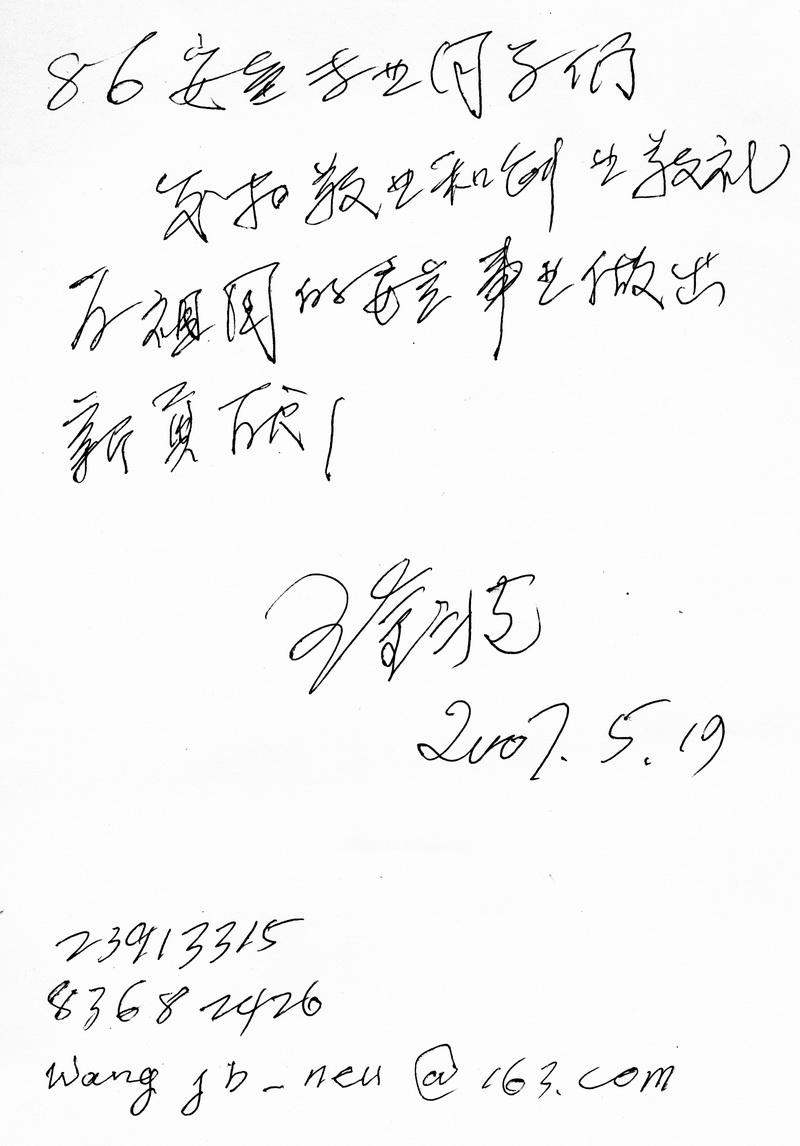 86安全专业同学们
发扬敬业和创业精神
为祖国的安全事业做出
新贡献！
2007.5.19
23913315
83682426
wangjb_neu@163.com